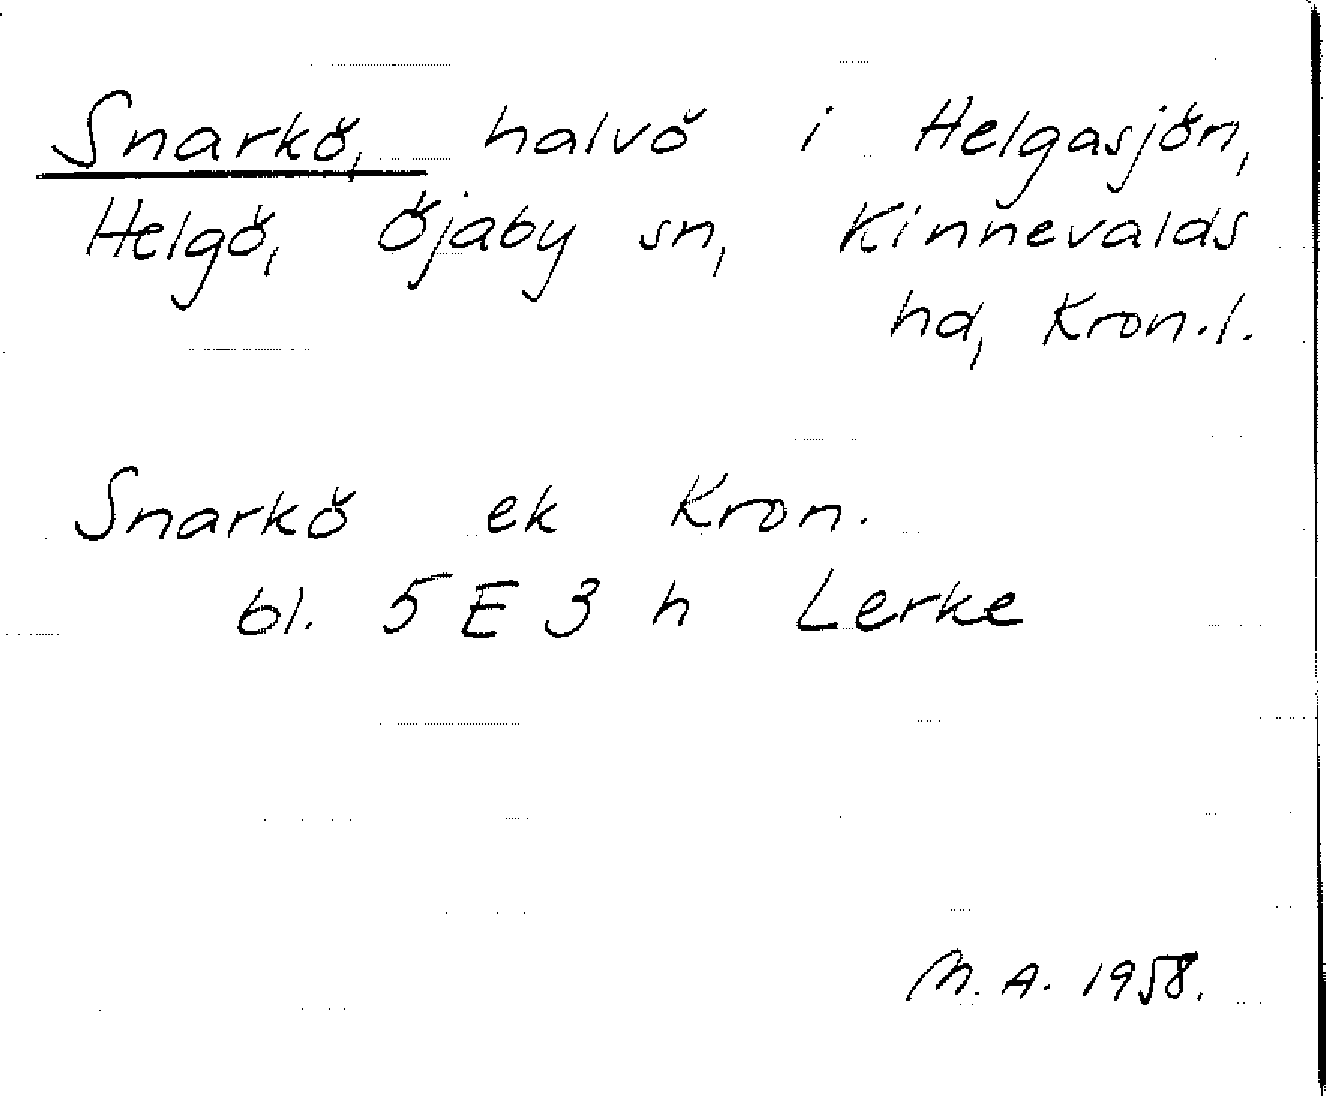 Snarkö, halvö i Helgasjön,
Helgö, Öjaby sn, Kinnevalds
hd, Kron.l.
Snarkö ek Kron.
bl. 5 E 3 h Lerke
M. A. 1958.